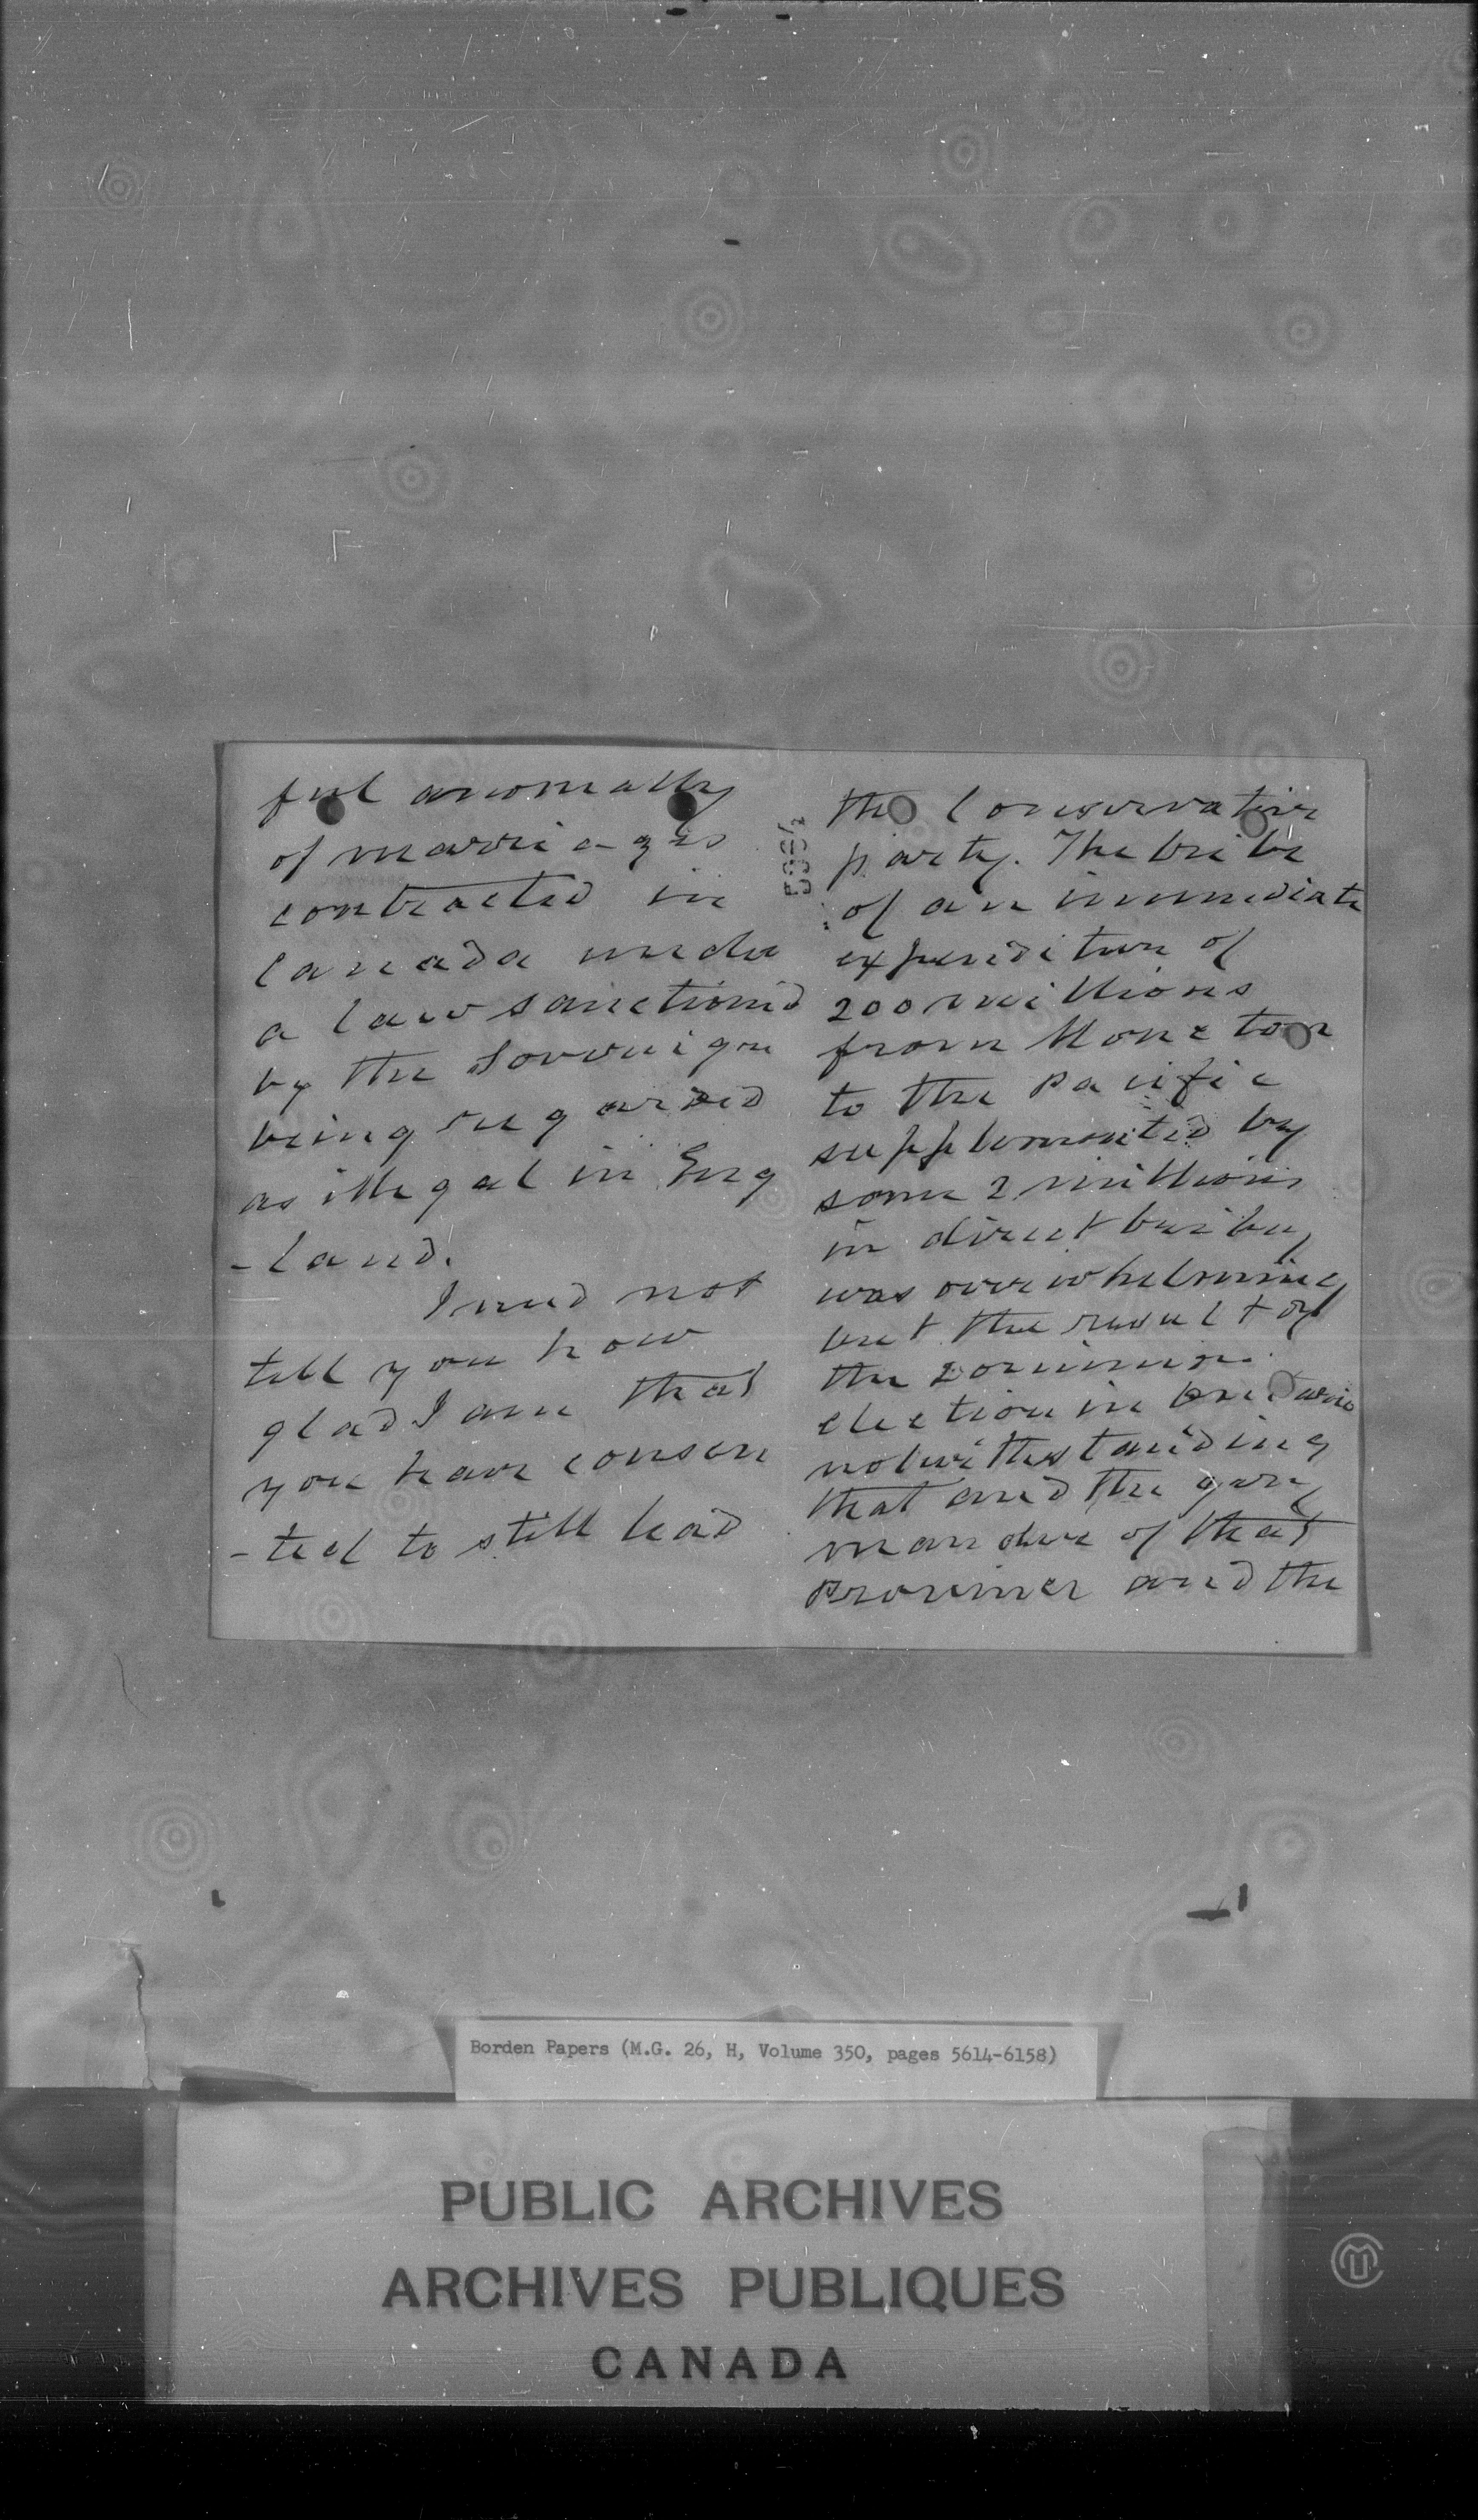 ful anomally
of marriages
contracted in
Canada under
a law sanctioned
by the Sovereign
being regarded
as illegal in Eng
-land.
I need not
tell you how
glad I am that
you have consen
-ted to still lead
the Conservative
party. The bribe
of an immediate
expenditure of
200 millions
from Moncton
to the Pacific
supplemented by
some 2 millions
in direct bribery
was overwhelming
but the result of
the Dominion
election in Ontario
notwithstanding
that and the gerry
mander of that
Province and the
Borden Papers (M.G. 26, H, Volume 350, pages 5614-6158)
PUBLIC ARCHIVES
ARCHIVES PUBLIQUES
CANADA